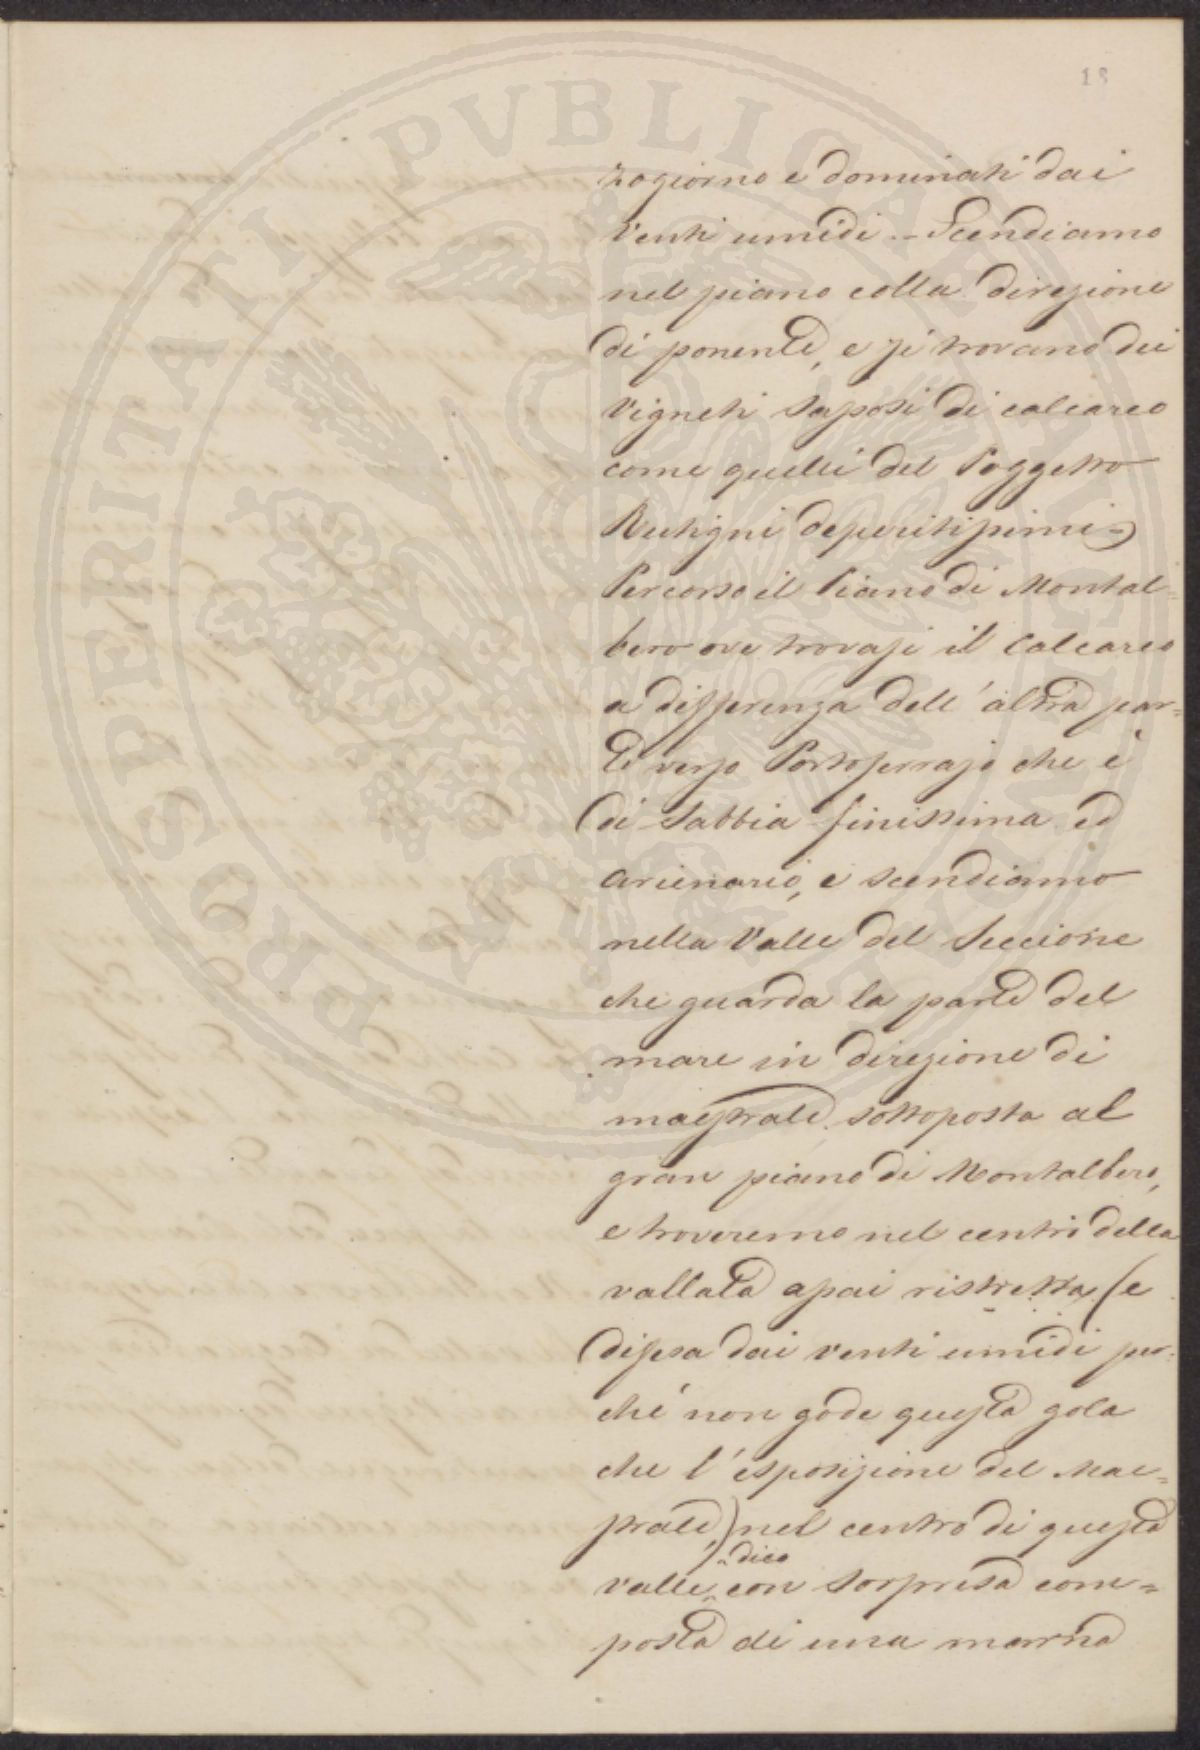 18
zogiorno e dominati dai
Venti umidi. – Scendiamo
nel piano colla direzione
di ponente, e si trovano dei
Vigneti sassosi di calcareo
come quelli del Poggetto
Rutigni deperitissimi =
Percorso il Piano di Montal=
bero ove trovasi il Calcareo
a differenza dell' altra par=
te verso Portoferrajo che è
di sabbia finissima ed
arienario, e scendiamo
nella Valle del Seccione
che guarda la parte del
mare in direzione di
maestrale sottoposta al
gran piano di Montalbero,
e troveremo nel centro della
vallata assai ristretta (e
difesa dai venti umidi per=
ché non gode questa gola
che l' esposizione del Mae=
strale,) nel centro di questa
valle, dico con sorpresa com=
posta di una marna
PROSPERITATI PVBLICAE AVGENDAE